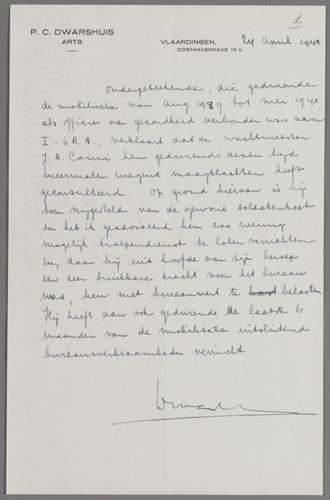 d
P. C. DWARSHUIS
ARTS
VLAARDINGEN, 24 April
OOSTHAVENKADE 19 b
Ondergeteekende, die gedurende
de mobilisatie van Aug 1939 tot Mei 1940
als officier van gezondheid verbonden was aan
I - 6 R.A., verklaart dat de wachtmeester
J. A. hem gedurende dezen tijd
meermalen wegens maagklachten heeft
geconsulteerd. Op grond hiervan is hij
toen vrijgesteld van de gewone soldatenkost
en heb ik geadviseerd hem zoo weinig
mogelijk troependienst te laten verrichten
en, daar hij uit hoofde van zijn beroep
een zeer bruikbare kracht voor het bureau
was, hem met bureauwerk te belasten
Hij heeft dan ook gedurende de laatste 6
maanden van de mobilisatie uitsluitend
bureauwerkzaamheden verricht.